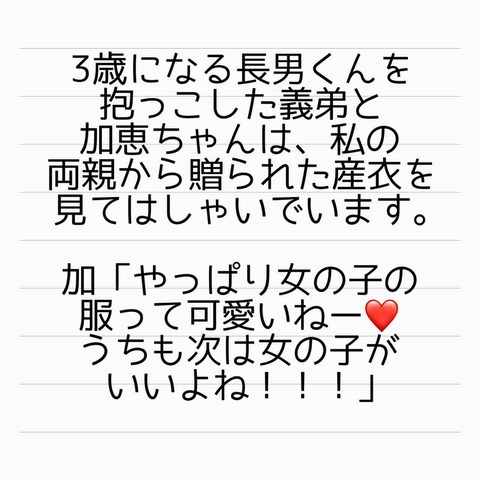 3歳になる長男くんを
抱っこした義弟と
加恵ちゃんは、私の
両親から贈られた産衣を
見てはしゃいでいます。
加「やっぱり女の子の
服って可愛いねー❤️
うちも次は女の子が
いいよね！！！」